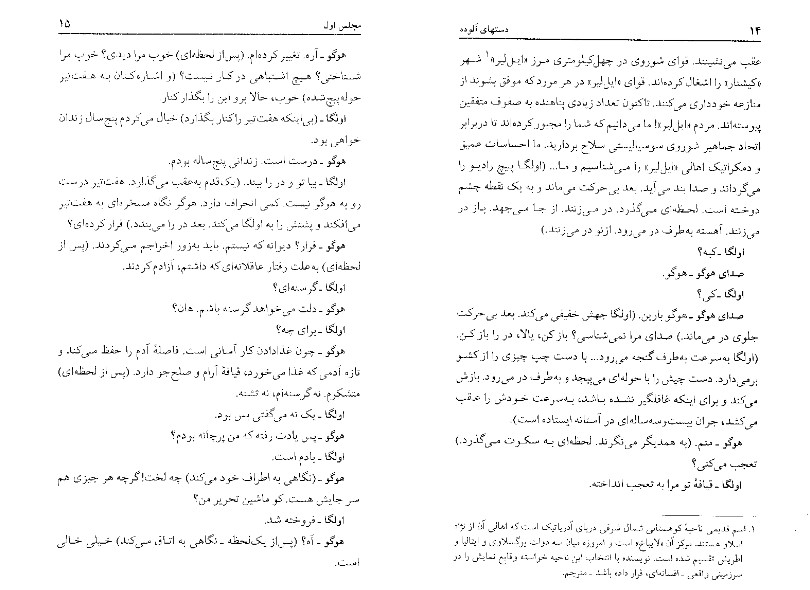 ۱۴
دستهای آلوده
عقب می‌نشینند. قوای شوروی در چهل‌کیلومتری مرز «ایل‌لیر»۱ شهر
«کیشنار» را اشغال کرده‌اند. قوای «ایل‌لیر» در هر مورد که موفق بشوند از
منازعه خودداری می‌کنند. تاکنون تعداد زیادی پناهنده به صفوف متفقین
پیوسته‌اند. مردم «ایل‌لیر»! ما می‌دانیم که شما را مجبور کرده‌اند تا دربرابر
اتحاد جماهیر شوروی سوسیالیستی سلاح بردارید. ما احساسات عمیق
و دمکراتیک اهالی «ایل‌لیر» را می‌شناسیم و ما... (اولگا پیچ رادیو را
می‌گرداند و صدا بند می‌آید. بعد بی‌حرکت می‌ماند و به یک نقطه چشم
دوخته است. لحظه‌ای می‌گذرد. در می‌زنند. از جا می‌جهد. باز در
می‌زنند. آهسته به‌طرف در می‌رود. ازنو در می‌زنند.)
اولگا ـ کیه؟
صدای هوگو ـ هوگو.
اولگا ـ کی؟
صدای هوگو ـ هوگو بارین. (اولگا جهش خفیفی می‌کند. بعد بی‌حرکت
جلوی در می‌ماند.) صدای مرا نمی‌شناسی؟ باز کن، یالا، در را باز کن.
(اولگا به‌سرعت به‌طرف گنجه می‌رود... با دست چپ چیزی را از کشو
برمی‌دارد. دست چپش را با حوله‌ای می‌پیچد و به‌طرف در می‌رود. بازش
می‌کند و برای اینکه غافلگیر نشده باشد، به‌سرعت خودش را عقب
می‌کشد، جوان بیست‌وسه‌ساله‌ای در آستانه ایستاده است)
هوگو ـ منم. (به همدیگر می‌نگرند. لحظه‌ای به سکوت می‌گذرد.)
تعجب می‌کنی؟
اولگا ـ قیافهٔ تو مرا به تعجب انداخته.
۱. قسم قدیمی ناحیهٔ کوهستانی شمال شرقی دریای آدریاتیک است که اهالی آن از نژاد
اسلاو هستند. مرکز آن «لایباخ» است و امروزه میان سه دولت یوگسلاوی و ایتالیا و
اطریش تقسیم شده است. نویسنده با انتخاب این ناحیه خواسته وقایع نمایش را در
سرزمینی واقعی ـ افسانه‌ای، قرار داده باشد ـ مترجم.
مجلس اول
۱۵
هوگو ـ آره. تغییر کرده‌ام. (پس از لحظه‌ای) خوب مرا دیدی؟ خوب مرا
شناختی؟ هیچ اشتباهی در کار نیست؟ (و اشاره‌کنان به هفت‌تیر
حوله‌پیچ‌شده) خوب، حالا برو این را بگذار کنار
اولگا ـ (بی‌اینکه هفت‌تیر را کنار بگذارد) خیال می‌کردم پنج‌سال زندان
خواهی بود.
هوگو ـ درست است. زندانی پنج‌ساله بودم.
اولگا ـ بیا تو و در را ببند. (یک‌قدم به‌عقب می‌گذارد. هفت‌تیر درست
رو به هوگو نیست. کمی انحراف دارد. هوگو نگاه مسخره‌ای به هفت‌تیر
می‌افکند و پشتش را به اولگا می‌کند. بعد در را می‌بندد.) فرار کرده‌ای؟
هوگو ـ فرار؟ دیوانه که نیستم. باید به‌زور اخراجم می‌کردند. (پس از
لحظه‌ای) به‌علت رفتار عاقلانه‌ای که داشتم، آزادم کردند.
اولگا ـ گرسنه‌ای؟
هوگو ـ دلت می‌خواهد گرسنه باشم. هان؟
اولگا ـ برای چه؟
هوگو ـ چون غذادادن کار آسانی است. فاصلهٔ آدم را حفظ می‌کند و
تازه آدمی که غذا می‌خورد، قیافهٔ آرام و صلح‌جو دارد. (پس از لحظه‌ای)
متشکرم. نه گرسنه‌ام، نه تشنه.
اولگا ـ یک نه می‌گفتی بس بود.
هوگو ـ پس یادت رفته که من پرچانه بودم؟
اولگا ـ یادم است.
هوگو ـ (نگاهی به اطراف خود می‌کند) چه لخت! گرچه هر چیزی هم
سر جایش هست. کو ماشین تحریر من؟
اولگا ـ فروخته شد.
هوگو ـ آه؟ (پس از یک‌لحظه ـ نگاهی به اتاق می‌کند) خیلی خالی
است.